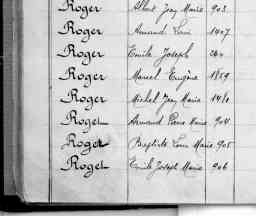 Roger Albert Jean Marie 903
Roger Armand Louis 1407
Roger Emile Joseph
Roger Marcel Eugène 1859
Roger Michel Jean Marie 1480
Roget Armand Pierre Marie 904
Roget Baptiste Louis Marie 905
Roget Emile Joseph Marie 906